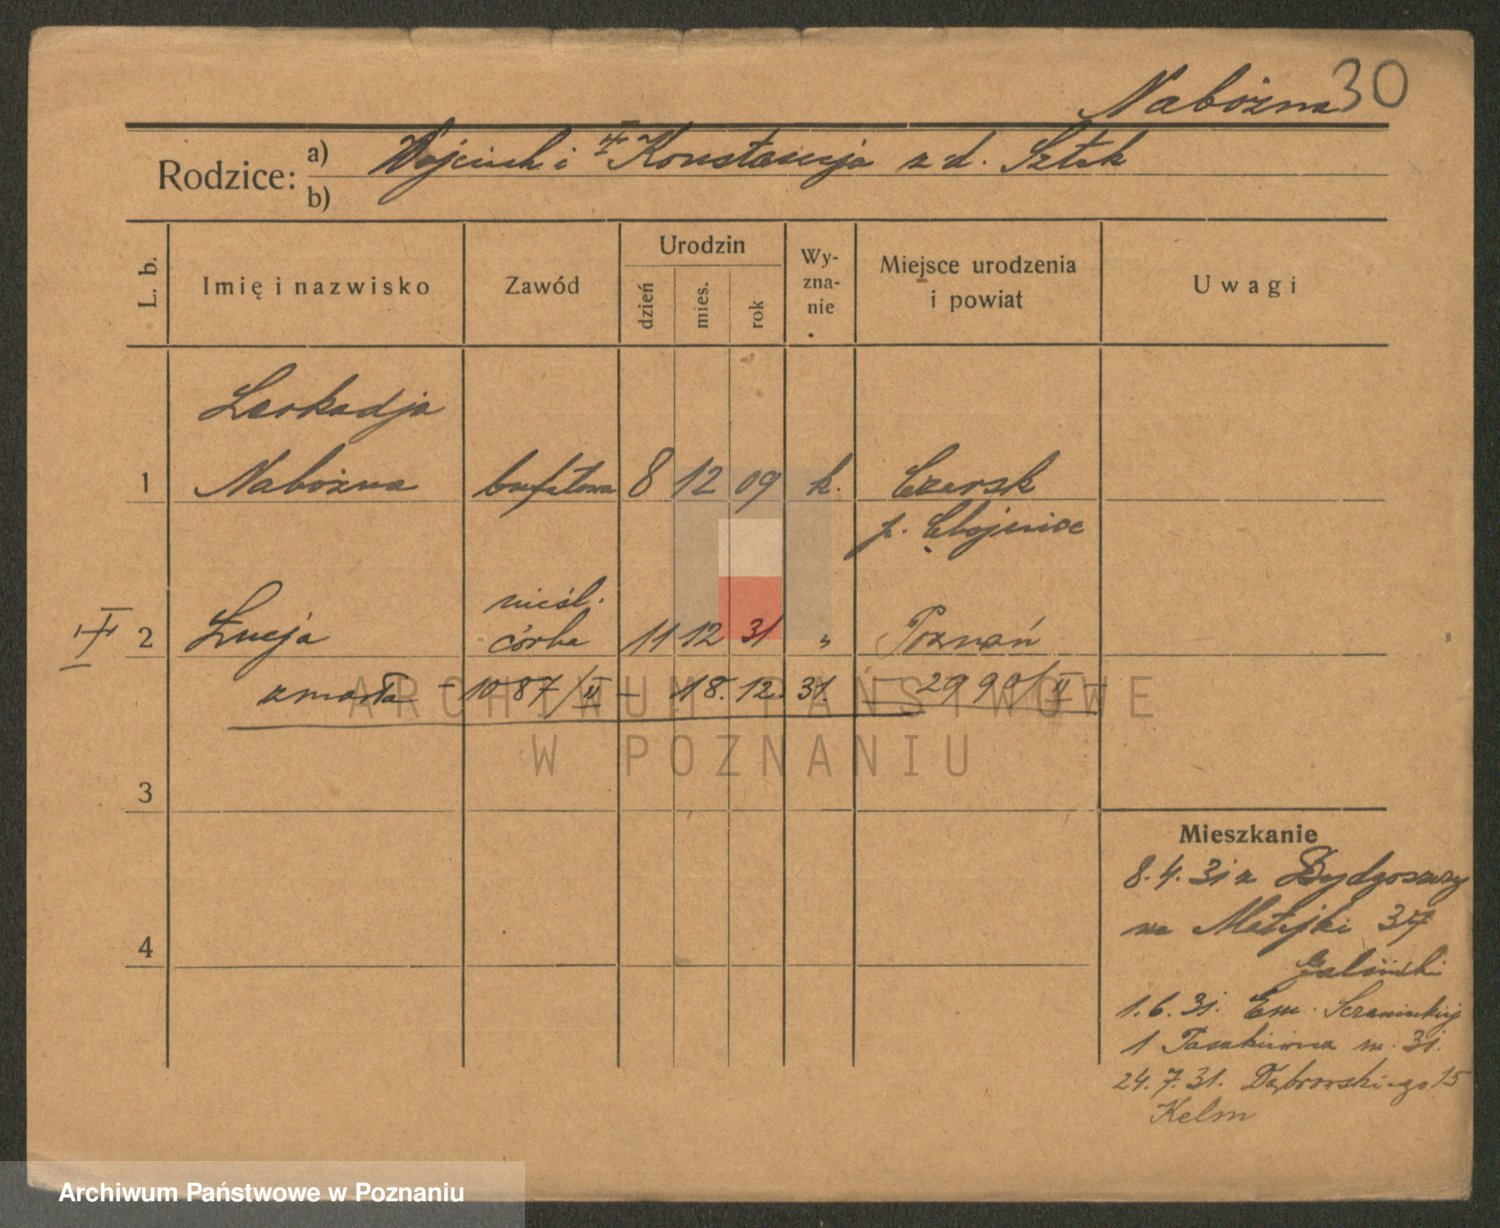 Nabożna 30
Rodzice: a) Wojciech i Konstancja z d. Sztek
b)
L. b. Imię i nazwisko Zawód Urodzin dzień mies. rok Wy-zna-nie Miejsce urodzenia i powiat Uwagi
Leokadja
1 Nabożna bufetowa 8 12 09 k. Czersk
p. Chojnice
nieśl.
2 Łucja córka 11 12 31 " Poznań
zmarła - 1087/II - 18. 12. 31. - 2990/II -
3
Mieszkanie
8. 4. 31 z Bydgoszczy
4
na Matejki
1. 6. 31. Em. Sczanieckiej
1 m. 31.
24. 7. 31. Dąbrowskiego 15
Kelm
ARCHIWUM PAŃSTWOWE
W POZNANIU
Archiwum Państwowe w Poznaniu